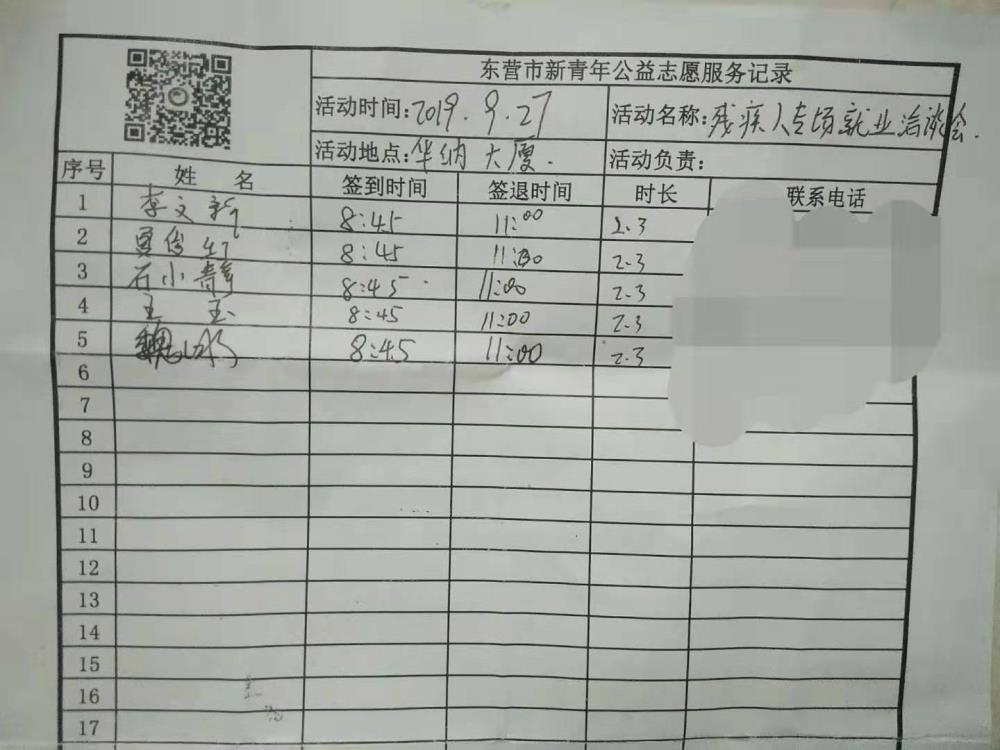 东营市新青年公益志愿服务记录
活动时间:2019.9.27 活动名称:残疾人专场就业洽谈会.
活动地点:华纳大厦. 活动负责:
序号 姓名 签到时间 签退时间 时长 联系电话
1 李文新 8:45 11:00 2.3
2 8:45 11:00 2.3
3 石小静 8:45 11:00 2.3
4 王玉 8:45 11:00 2.3
5 8:45 11:00 2.3
6
7
8
9
10
11
12
13
14
15
16
17